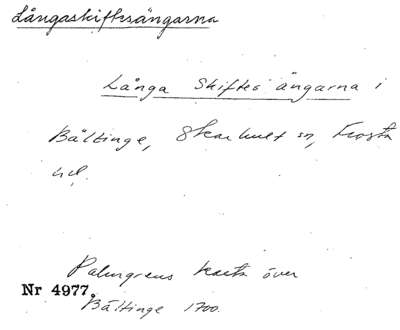 Långaskiftesängarna
Långa Skiftes ängarna i
Bältinge, Skarhult sn, Frosta
hd.
Palmgrens karta över
Nr 4977.
Bältinge 1700.